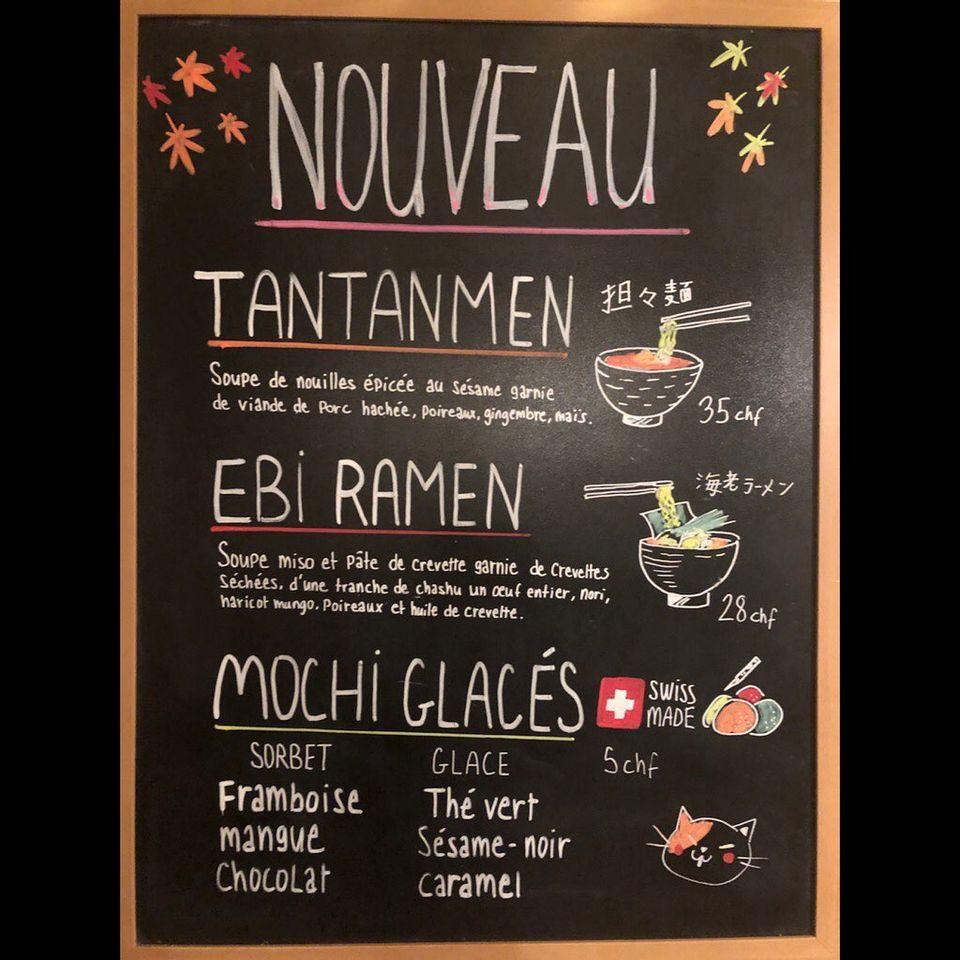 NOUVEAU
TANTANMEN
担々麺
Soupe de nouilles épicée au sésame garnie
de viande de porc hachée, poireaux, gingembre, maïs.
35chf
EBI RAMEN
海老ラーメン
Soupe miso et pâte de crevette garnie de crevettes
séchées, d'une tranche de chashu un oeuf entier, nori,
haricot mungo, poireaux et huile de crevette.
28chf
MOCHI GLACÉS
SWISS
MADE
SORBET GLACE 5chf
Framboise Thé vert
mangue Sésame-noir
Chocolat caramel